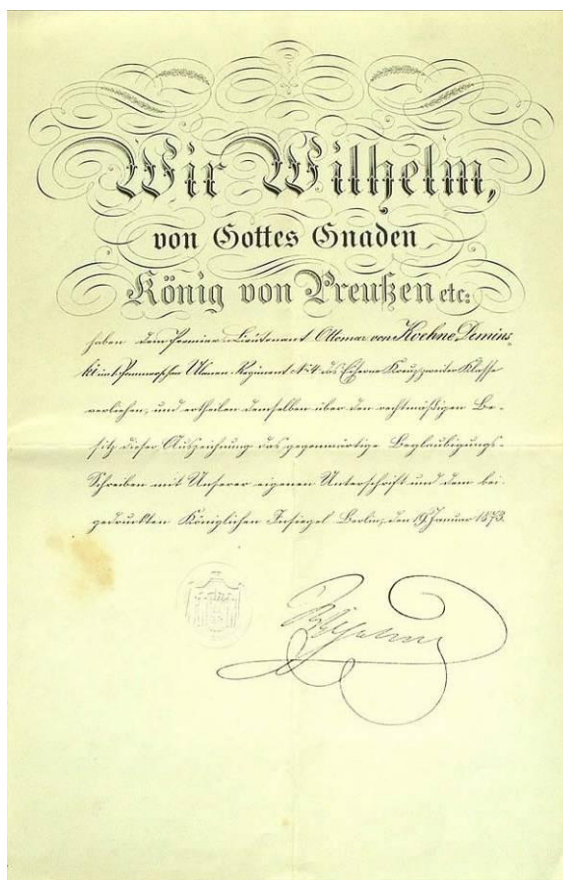 Wir Wilhelm,
von Gottes Gnaden
König von Preußen etc:
haben dem Premier-Lieutenant Ottomar von Koehne Demins-
ki im 1. Pommerschen Ulanen-Regiment No 4 das Eiserne Kreuz zweiter Klasse
verliehen, und ertheilen demselben über den rechtmäßigen Be-
sitz dieser Auszeichnung das gegenwärtige Beglaubigungs-
Schreiben mit Unserer eigenen Unterschrift und dem bei-
gedruckten Königlichen Insiegel Berlin, den 19. Januar 1873.
Wilhelm